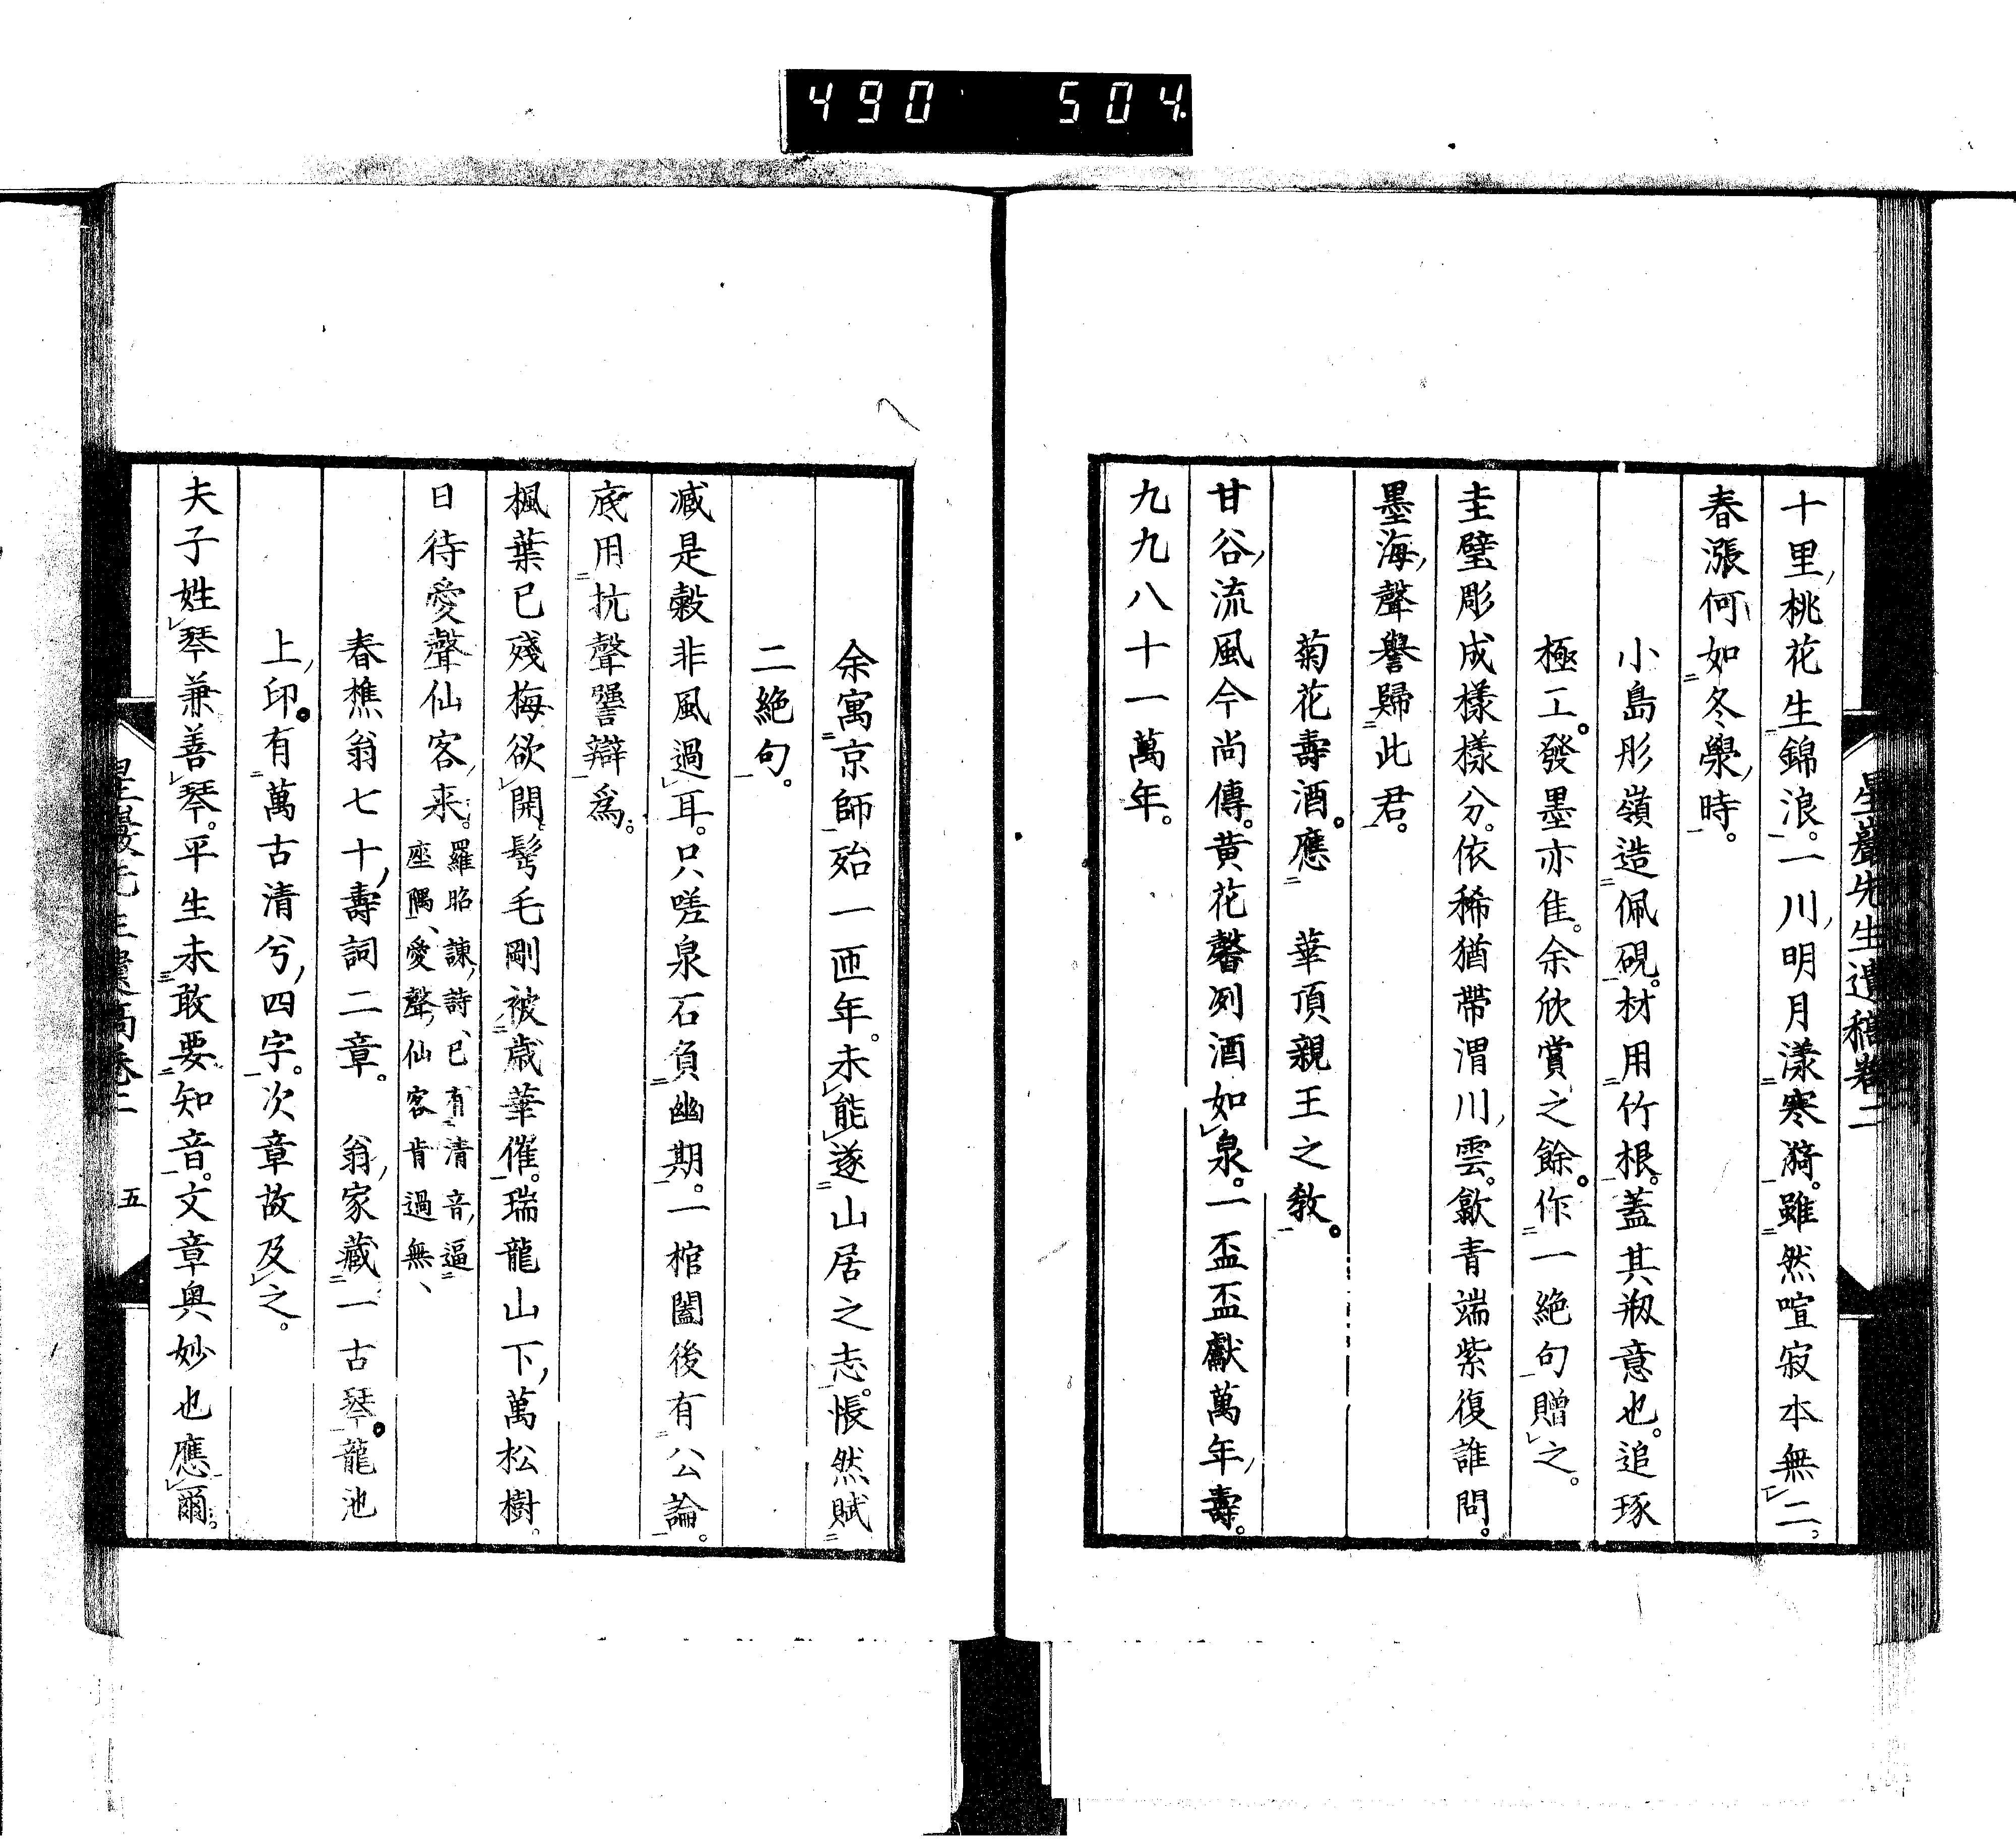 490 504
星巖先生遺稿卷二
十里桃花生錦浪。一川明月漾寒漪。雖然喧寂本無二。
春漲何如冬漀時。
小島彤嶺造佩硯。材用竹根。蓋其剏意也。追琢
極工。發墨亦佳。余欣賞之餘。作一絶句贈之。
圭璧彫成樣樣分。依稀猶帶渭川雲。歙青端紫復誰問。
墨海聲譽歸此君。
菊花壽酒。應 華頂親王之敎。
甘谷流風今尚傳。黄花馨冽酒如泉。一盃盃獻萬年壽。
九九八十一萬年。
余寓京師殆一匝年。未能遂山居之志。悵然賦
二絶句。
減是穀非風過耳。只嗟泉石負幽期。一棺闔後有公論。
底用抗聲譻辯爲。
楓葉已殘梅欲開。鬂毛剛被歲華催。瑞龍山下萬松樹。
日待愛聲仙客來。羅昭諫詩、已有清音逼
座隅、愛聲仙客肯過無、
春樵翁七十壽詞二章。 翁家藏一古琴。龍池
上印。有萬古清兮四字。次章故及之。
夫子姓琴兼善琴。平生未敢要知音。文章奥妙也應爾。
星巖先生遺稿卷二 五